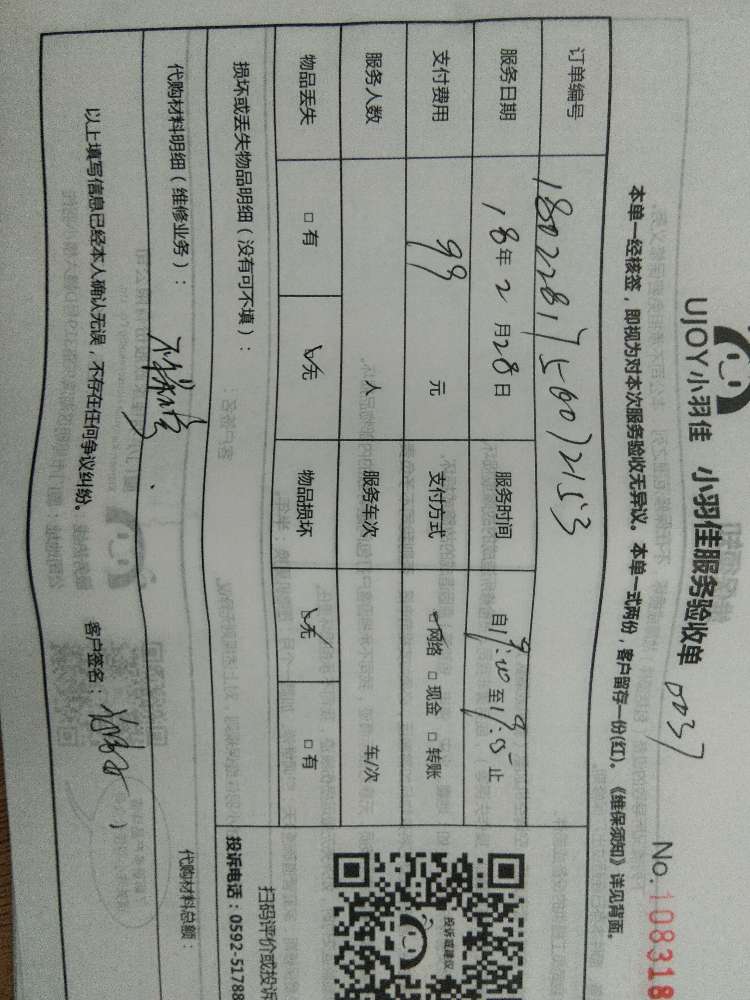 UJOY小羽佳 小羽佳服务验收单 0037 No.108318
本单一经核签，即视为对本次服务验收无异议。本单一式两份，客户留存一份(红)。《维保须知》详见背面。
订单编号
服务日期 18年2月28日 服务时间 自 至 止
支付费用 99 元 支付方式 网络 □现金 □转账
服务人数 人 服务车次 车/次
物品丢失 □有 无 物品损坏 无 □有
损坏或丢失物品明细（没有可不填）：
代购材料明细（维修业务）： 代购材料总额：
以上填写信息已经本人确认无误，不存在任何争议纠纷。 客户签名：
投诉或建议
扫码评价或投诉
投诉电话：0592-51788